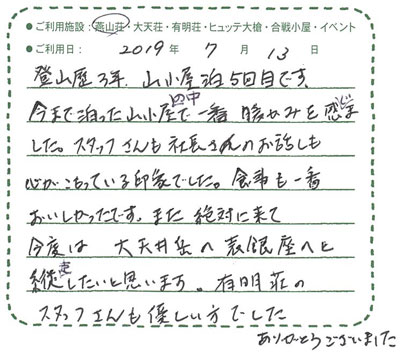 ●ご利用施設：燕山荘・大天荘・有明荘・ヒュッテ大槍・合戦小屋・イベント
●ご利用日： 2019年 7月 13日
登山歴3年、山小屋泊5回目です。
今まで泊った山小屋の中で一番 暖かみを感じま
した。スタッフさんも社長さんのお話しも
心がこもっている印象でした。食事も一番
おいしかったです。また 絶対に来て
今度は 大天井岳へ 表銀座へと
縦走したいと思います。有明荘の
スタッフさんも優しい方でした
ありがとうございました